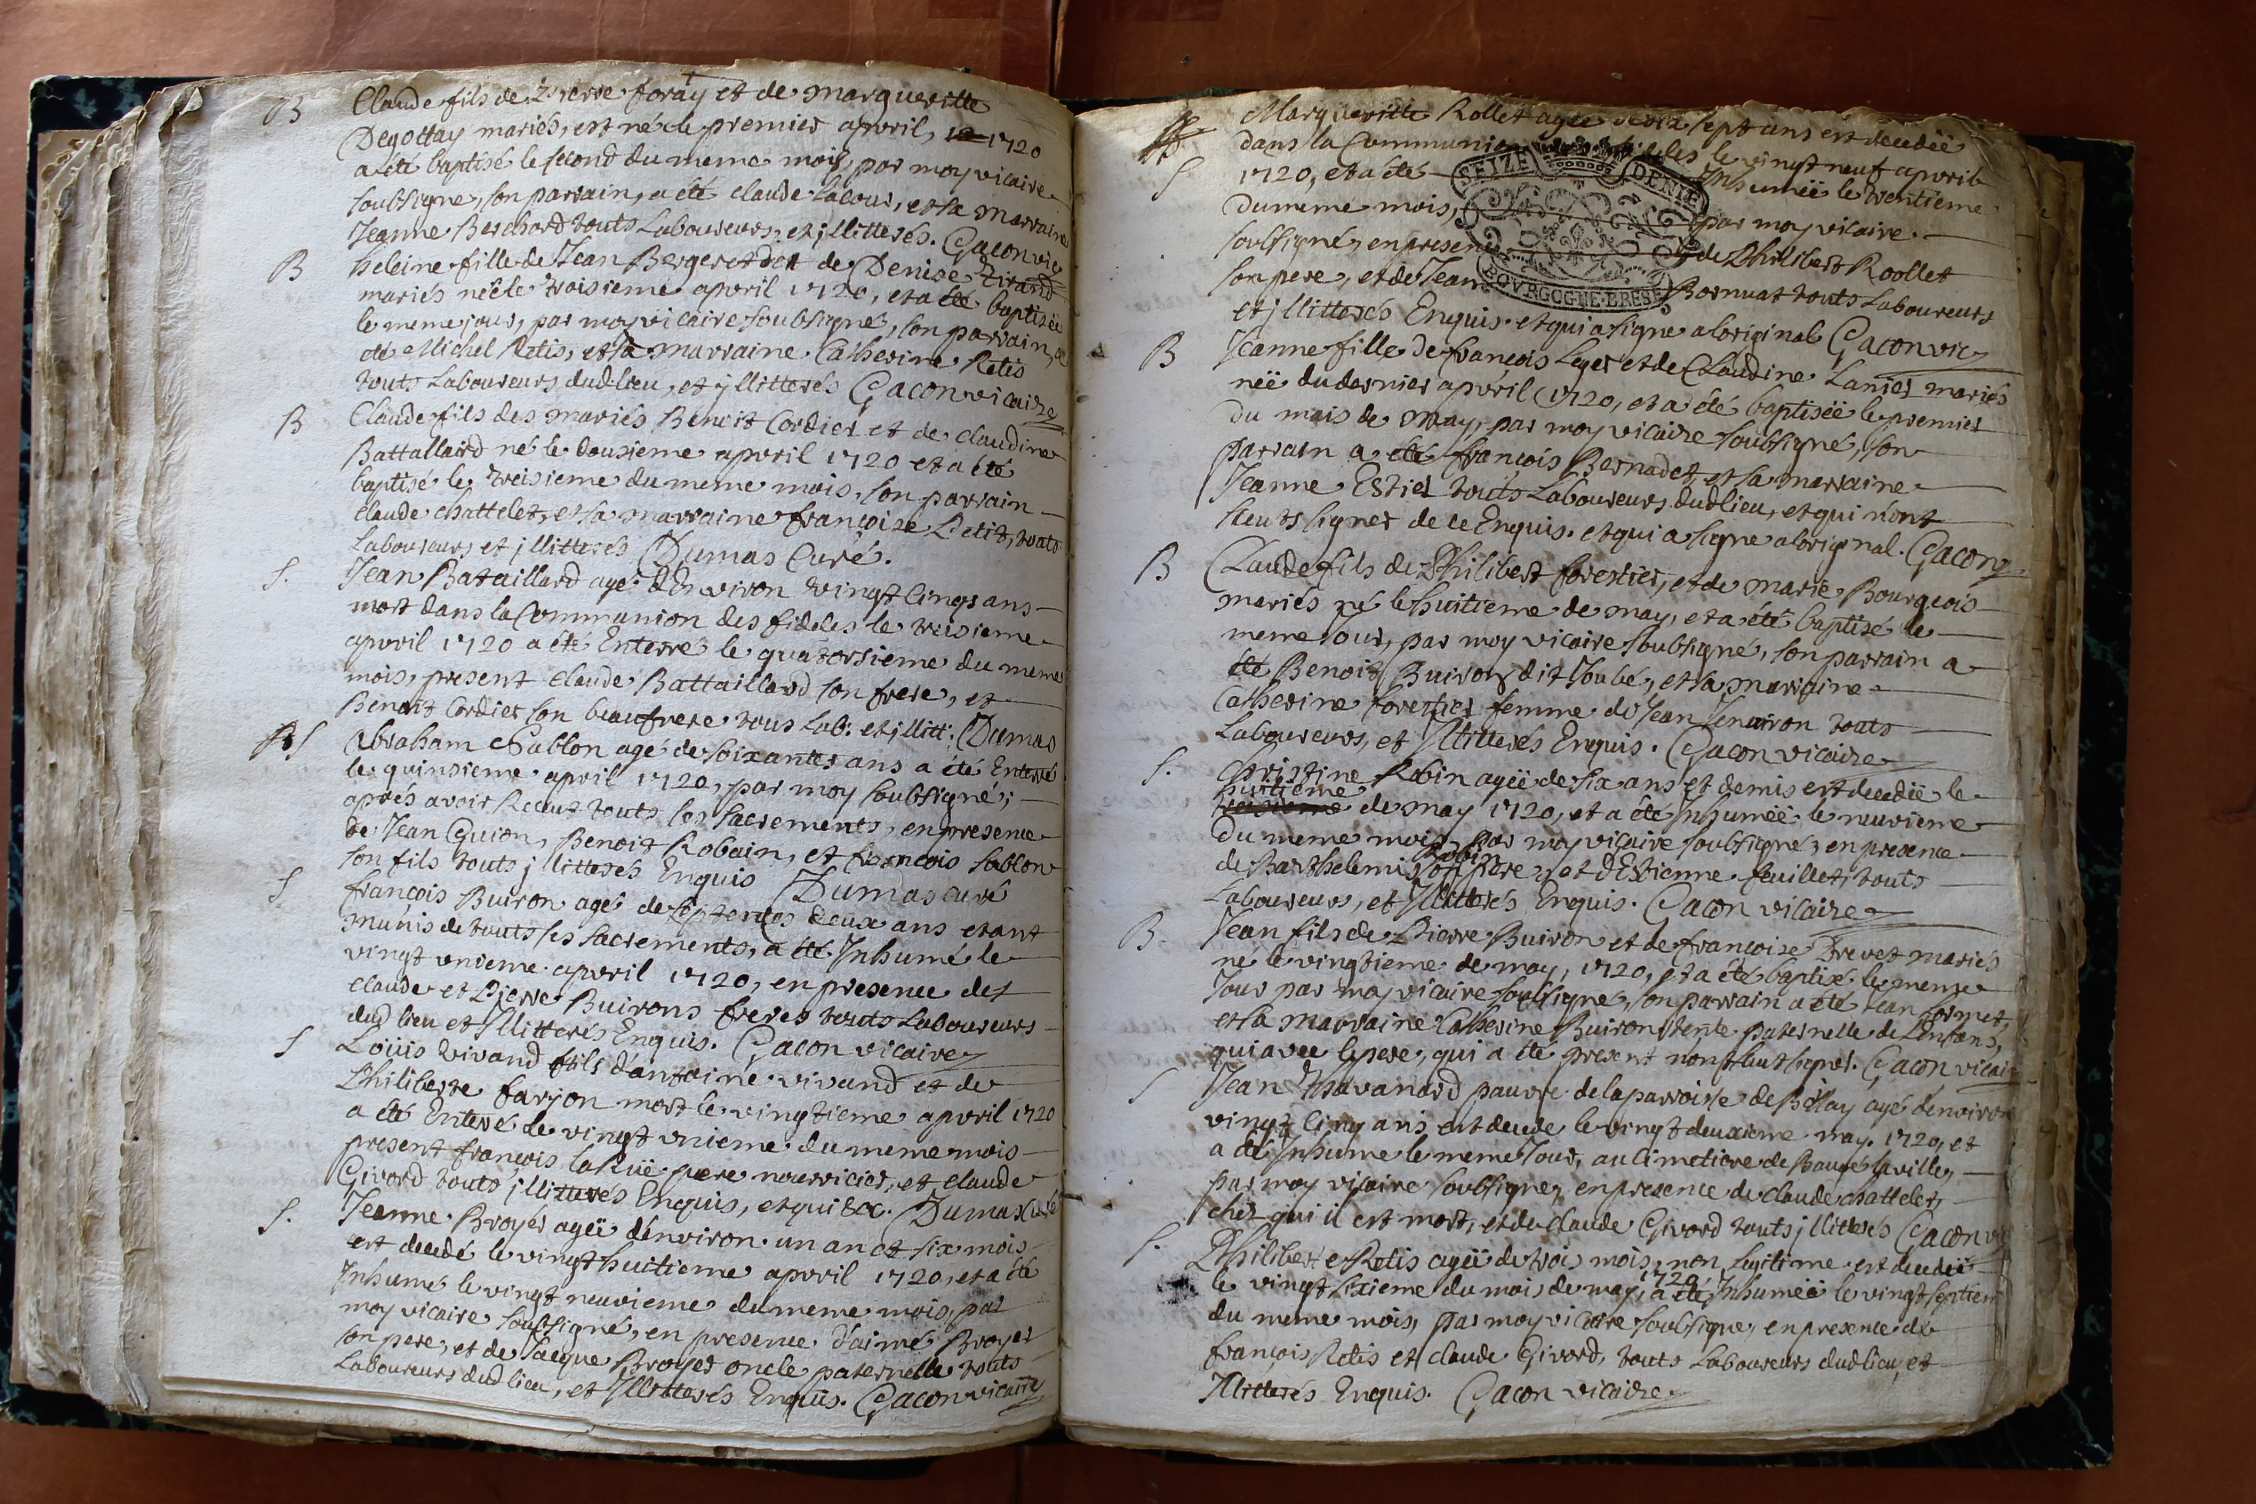 B Claude fils de Pierre foray et de margueritte
Degottay mariés, est né le premier apvril, 1720
a été baptisé le second du meme mois, par moy vicaire
soubsigné, son parrain, a été claude Lacour, et sa marraine
Jeanne Berchard touts Laboureurs, et jllitterés. Gacon vic
B heleine fille de Jean Bergeret dit de Denise Tirand
mariés néé le troisieme apvril 1720, et a été baptiséé
le meme jour, par moy vicaire soubsigné, son parrain, a
été Michel Retis, et sa marraine Catherine Retis
touts Laboureurs dud lieu, et jllitterés Gacon vicaire
B Claude fils des mariés Benoit Cordier et de claudine
Battallaird né le dousieme apvril 1720 et a été
baptisé le treisieme du meme mois, son parrain
claude chattelet, et sa marraine françoise Petit, touts
Laboureurs et jllitterés Dumas Curé.
S. Jean Bataillard agé d'Environ vingt cinq ans
mort dans la Communion des fideles le treisieme
apvril 1720 a été Enterré le quatorsieme du meme
mois, present claude Battaillard son frere, et
Benoit Cordier son beaufrere tous Lab. et jllitt. Dumas
S Abraham Sablon agé de soixantes ans a été Enterré
le quinsieme april 1720, par moy soubsigné;
aprés avoir Receut touts les sacrements, en presence
de Jean Guion, Benoit Robain, et francois sablon
son fils touts jllitterés Enquis Dumas curé
S françois Buiron agé de septentes deux ans etant
munis de touts ses sacrements, a été Inhumé le
vingt unieme apvril 1720, en presence des
claude et Pierre Buirons freres touts Laboureurs
dud lieu et Jllitterés Enquis. Gacon vicaire
S Loüis vivand fils d'antoine vivand et de
Philiberte farjon mort le vingtieme apvril 1720
a été Enteré le vingt unieme du meme mois
present françois laRuë pere nourricier, et claude
Givord touts jllitterés Enquis, et qui &c. Dumas Curé
S. Jeanne Broyer agéé d'environ un an et six mois
est decedé le vingt huitieme apvril 1720, et a été
Inhumé le vingt neuvieme du meme mois, par
moy vicaire soubsigné, en presence d'aimé Broyer
son pere, et de Jacque Broyer oncle paternelle touts
Laboureurs dud lieu, et Jllitterés Enquis. Gacon vicaire
Margueritte Rollet agéé sept ans est decedéé
dans la Communion fideles le vingt neuf apvril
S 1720, et a été Inhuméé le trentieme
du meme mois, par moy vicaire
soubsigné, en presence de Philibert Roollet
son pere, et de Jean Bornuat touts Laboureurs
et jllitterés Enquis. et qui a signé aloriginal Gacon vic
SEIZE DENIE
BOVRGOGNE·BRESE
B Jeanne fille de francois Leger et de Claudine Lanier mariés
néé du dernier apvril 1720, et a été baptiséé le premier
du mois de may, par moy vicaire soubsigné, son
parrain a été françois Bernadet, et sa marraine
Jeanne Estier touts Laboureurs dud lieu, et qui n'ont
sceut signer de ce Enquis. et qui a signé aloriginal. Gacon
B Claude fils de Philibert forestier, et de marie Bourgeois
mariés né le huitieme de may, et a été baptisé le
meme Jour, par moy vicaire soubsigné, son parrain a
été Benoit Buiron dit Joubé, et sa marraine
Catherine forestier femme de Jean Jenairon touts
Laboureurs, et Jllitterés Enquis. Gacon vicaire
S. christine Robin agéé de six ans et demis est decedéé le
huitieme
de may 1720, et a été Inhuméé le neuvieme
du meme mois, par moy vicaire soubsigné, en presence
Robin
de Barthelemi son pere, et d'Estienne feuillet, touts
Laboureurs, et Jllitterés Enquis. Gacon vicaire
B Jean fils de Pierre Buiron et de françoise Brevet mariés
né le vingtieme de may, 1720, et a été baptisé le meme
Jour par moy vicaire soubsigné, son parrain a été Jean Cornet,
et sa marraine Catherine Buiron tente paternelle de L'enfans,
qui avec le pere, qui a été present n'ont sceut signer. Gacon vicaire
S Jean Thavanard pauvre de la parroisse de Bélay agé denviron
vingt Cinq ans est decede le vingt deuxieme may. 1720, et
a été Inhume le meme Jour, au cimetiere de Baugé la ville,
par moy vicaire soubsigne, en presence de claude chattelet,
chés qui il est mort, et de claude Givord touts jllitterés Gacon vi
S. Philiberte Retis agéé de trois mois, non legitime est decedéé
1720
le vingt sixieme du mois de may, a été Inhuméé le vingt septiem
du meme mois, par moy vicaire soubsigne, en presence de
françois Retis et claude Givord, touts Laboureurs dud lieu, et
Jllitterés Enquis. Gacon vicaire